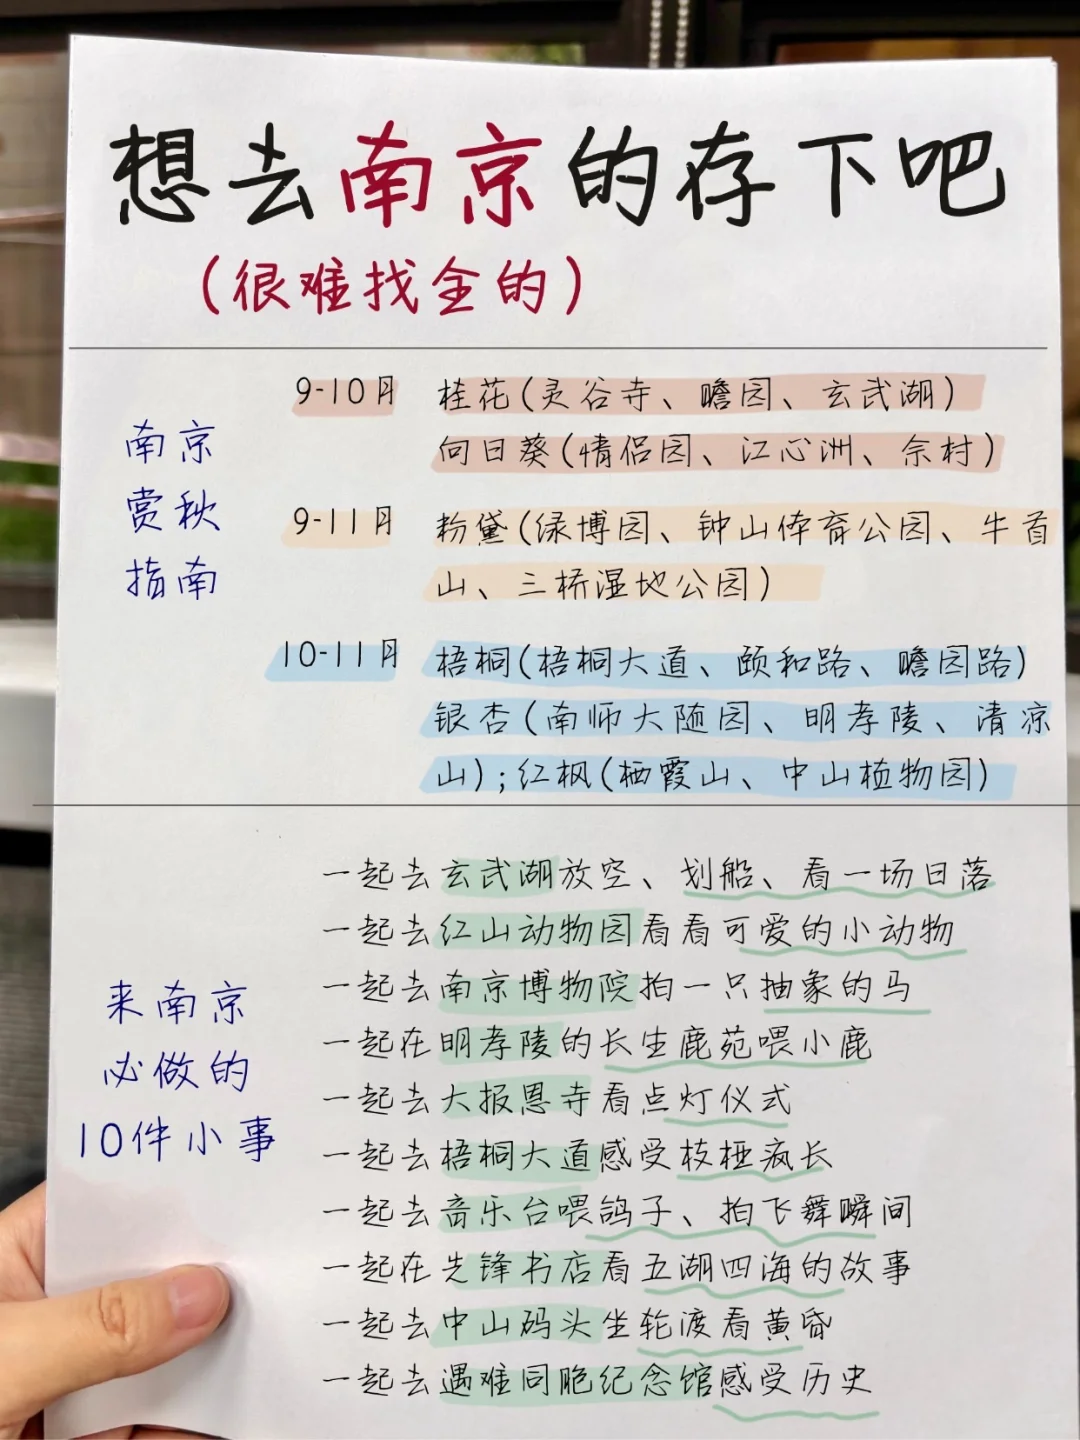 想去南京的存下吧
(很难找全的)
南京
赏秋
指南
9-10月 桂花(灵谷寺、瞻园、玄武湖)
向日葵(情侣园、江心洲、佘村)
9-11月 粉黛(绿博园、钟山体育公园、牛首
山、三桥湿地公园)
10-11月 梧桐(梧桐大道、颐和路、瞻园路)
银杏(南师大随园、明孝陵、清凉
山);红枫(栖霞山、中山植物园)
来南京
必做的
10件小事
一起去玄武湖放空、划船、看一场日落
一起去红山动物园看看可爱的小动物
一起去南京博物院拍一只抽象的马
一起在明孝陵的长生鹿苑喂小鹿
一起去大报恩寺看点灯仪式
一起去梧桐大道感受枝桠疯长
一起去音乐台喂鸽子、拍飞舞瞬间
一起在先锋书店看五湖四海的故事
一起去中山码头坐轮渡看黄昏
一起去遇难同胞纪念馆感受历史